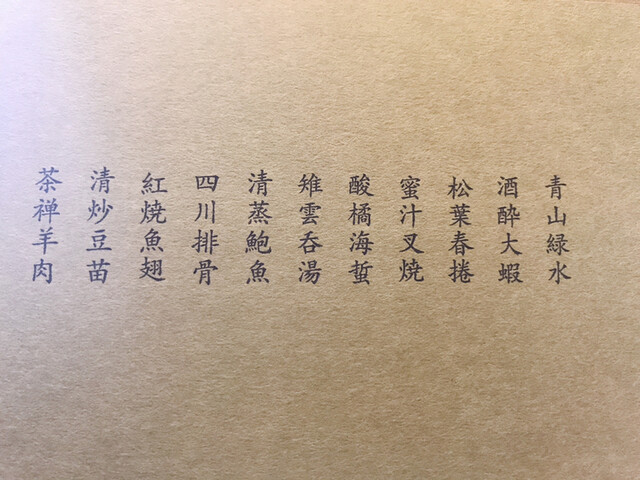 青山緑水
酒酔大蝦
松葉春捲
蜜汁叉焼
酸橘海蜇
雉雲呑湯
清蒸鮑魚
四川排骨
紅焼魚翅
清炒豆苗
茶禅羊肉